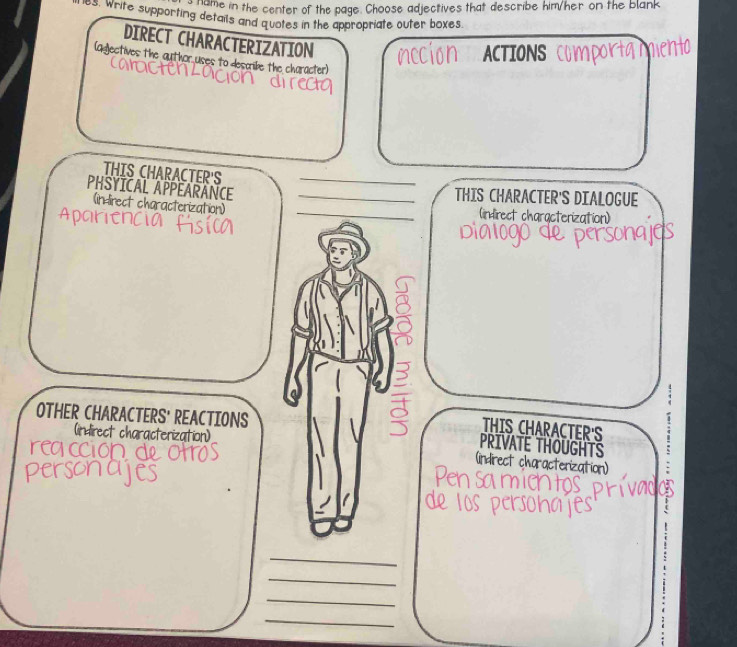 name in the center of the page. Choose adjectives that describe him/her on the blank
Write supporting details and quotes in the appropriate outer boxes.
DIRECT CHARACTERIZATION
(adjectives the author uses to describe the character)
caracterizacion directa
accion ACTIONS comportamiento
THIS CHARACTER'S
PHSYICAL APPEARANCE
(indirect characterization)
Apariencia fisica
THIS CHARACTER'S DIALOGUE
(indirect characterization)
Dialogo de personajes
George milton
OTHER CHARACTERS' REACTIONS
(indirect characterization)
reaccion de otros
personajes
THIS CHARACTER'S
PRIVATE THOUGHTS
(indirect characterization)
Pensamientos privados
de los personajes